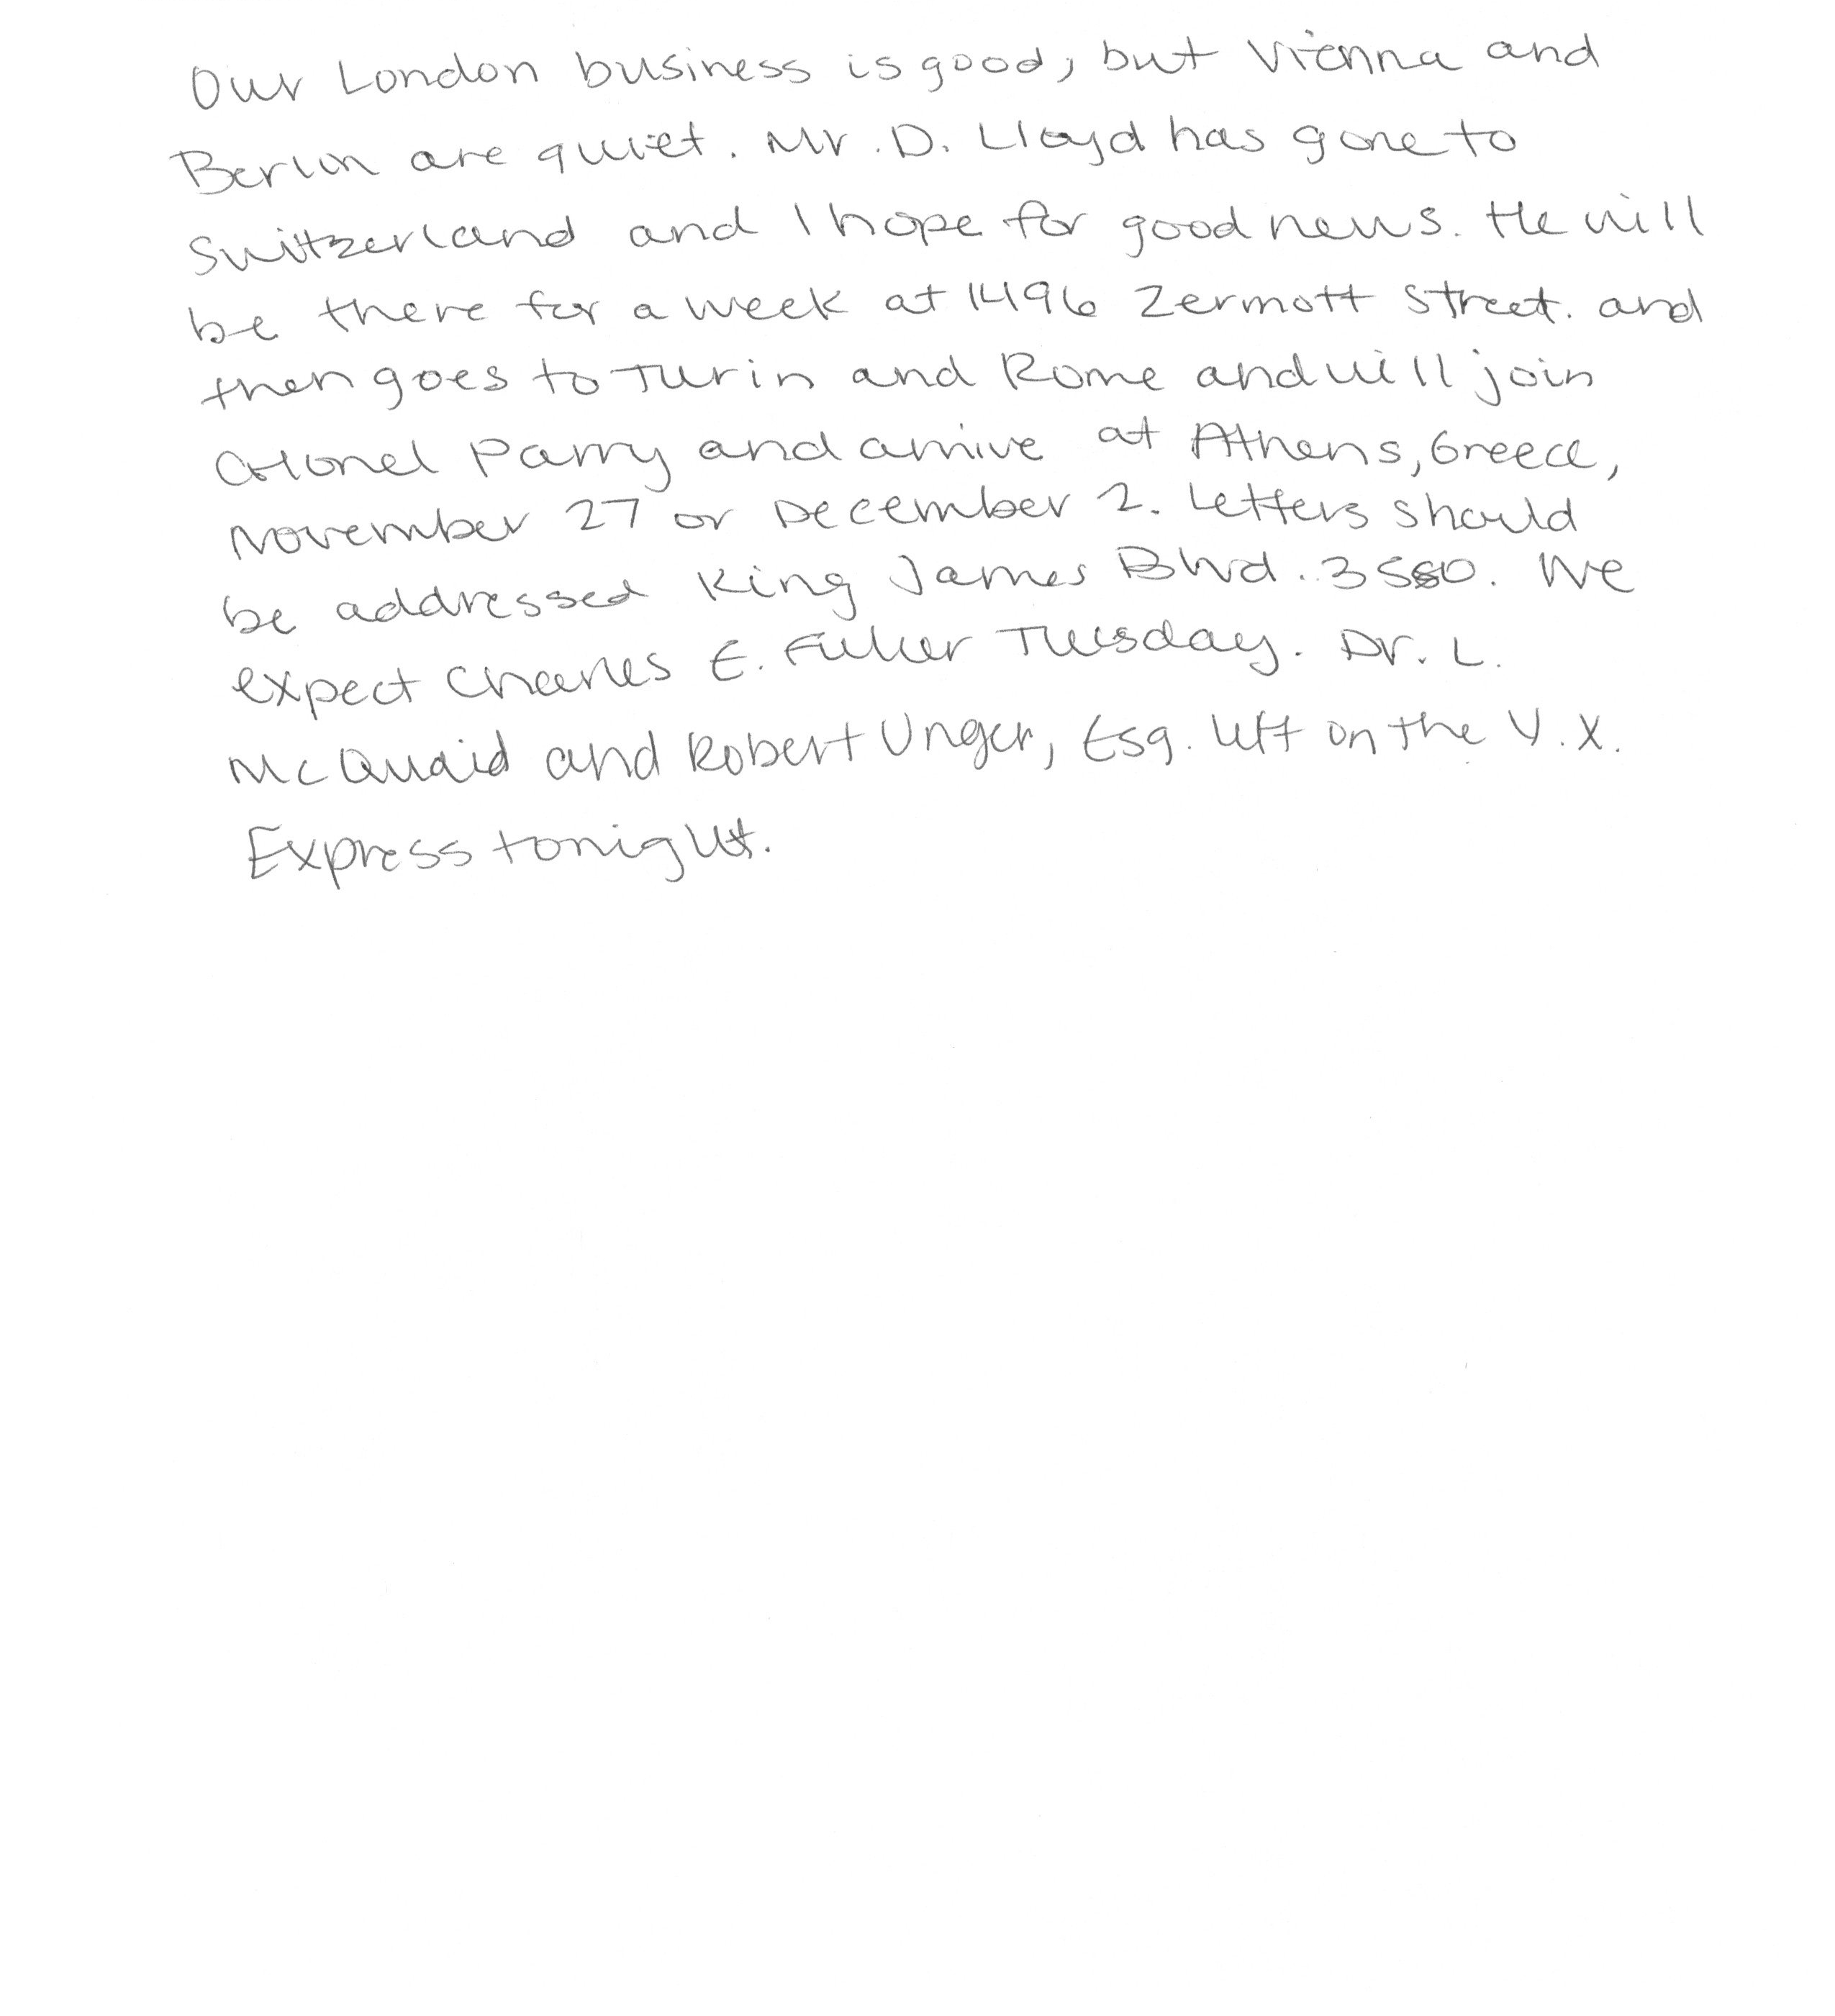 Our London business is good, but Vienna and
Berlin are quiet. Mr. D. Lloyd has gone to
Switzerland and I hope for good news. He will
be there for a week at 1496 Zermott Street. and
then goes to Turin and Rome and will join
Colonel Parry and arrive at Athens, Greece,
November 27 or December 2. Letters should
be addressed King James Blvd. 3580. We
expect Charles E. Fuller Tuesday. Dr. L.
McQuaid and Robert Unger, Esq. left on the Y. X.
Express tonight.